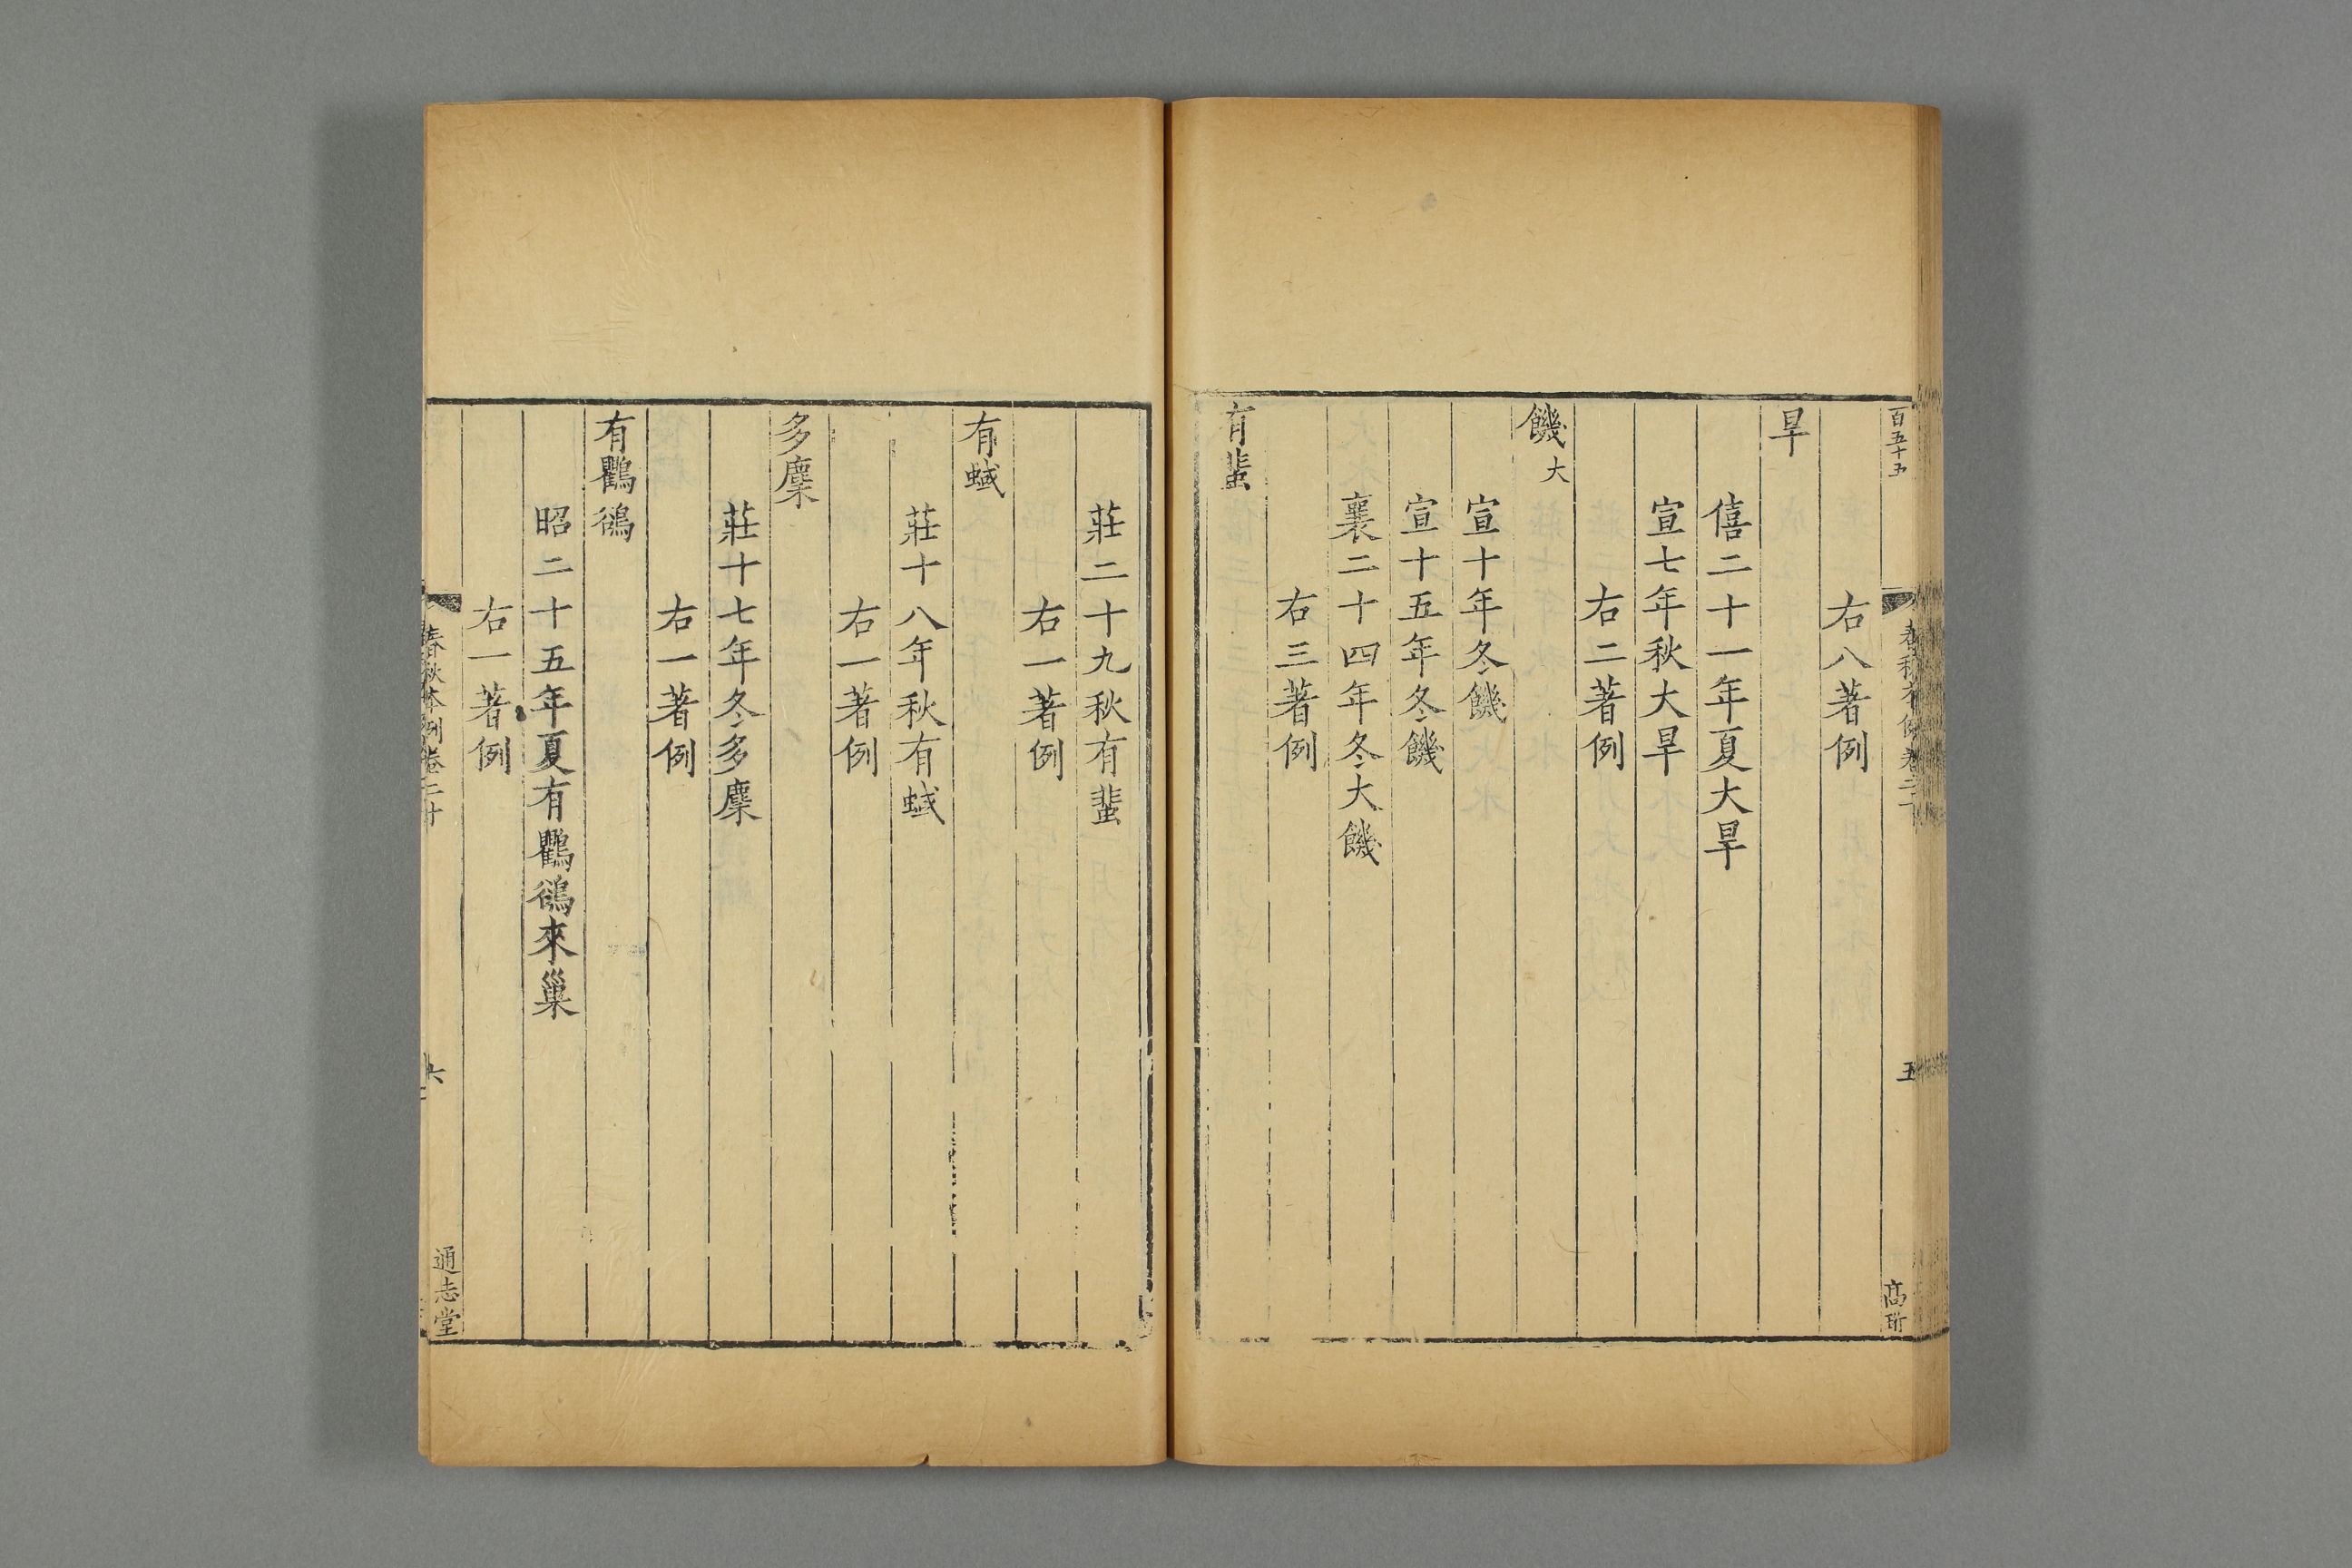 百五十五
春秋本例卷二十
五
高珩
右八著例
旱
僖二十一年夏大旱
宣七年秋大旱
右二著例
饑大
宣十年冬饑
宣十五年冬饑
襄二十四年冬大饑
右三著例
有蜚
莊二十九秋有蜚
右一著例
有蜮
莊十八年秋有蜮
右一著例
多麋
莊十七年冬多麋
右一著例
有鸜鵒
昭二十五年夏有鸜鵒來巢
右一著例
春秋本例卷二十
六
通志堂